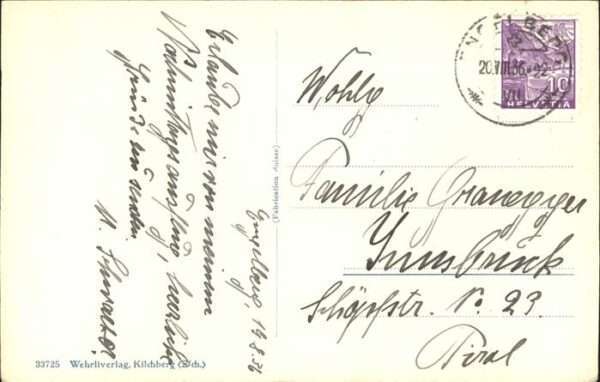 Engelberg, 19.8.36
Erlaube mir von meinem
Nachmittagsausflug, herzliche
Grüsse zu senden.
(Fabrication Suisse)
33725 Wehrliverlag, Kilchberg (Zch.)
ENGELBERG
20.VIII.36-22
10
HELVETIA
Wohlg
Familie
Innsbruck
Schöpfstr. No. 23.
Tirol